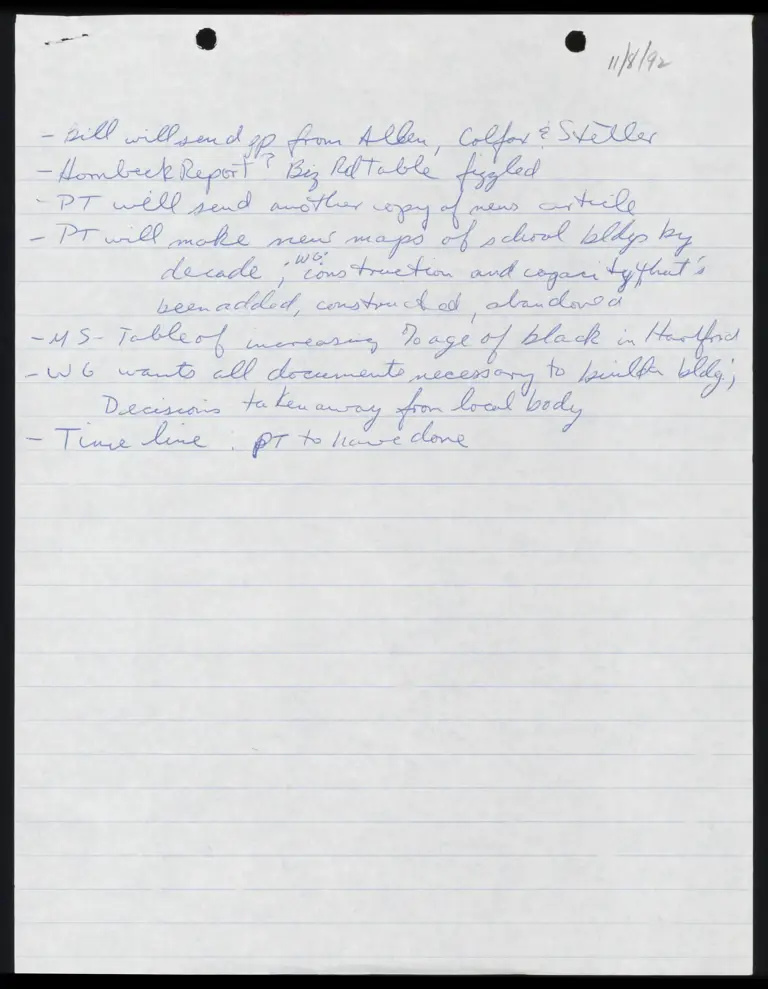 11/8/92
- Bill will send gp from Allen, Colfox & Steller
- Hornbeck Report? Biz Rd Table fizzled
- PT will send another copy of news article
- PT will make new maps of school bldgs by
decade; "WG: construction and capacity that's
been added, constructed, abandoned
- MS - Table of increasing %age of black in Hartford
- WG wants all documents necessary to build a bldg;
Decisions taken away from local body
- Time line : PT to have done